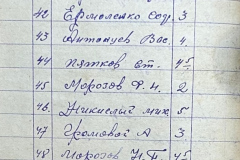 42 Ермоленко Сер. 3
43 Антонцев Вас. 4.
44 Пятков Ст. 45
45 Морозов Ф. Н. 2
46. Никислый мих 5
47 Громовой А 3
48 Морозов Н. П. 45